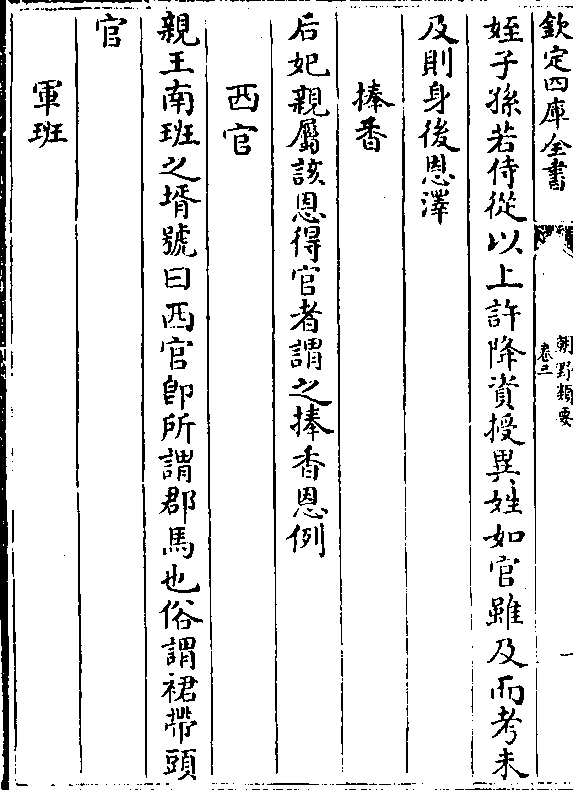 欽定四庫全書
朝野類要
卷三
一
姪子孫若侍從以上許降資授異姓如官雖及而考未
及則身後恩澤
捧香
后妃親屬該恩得官者謂之捧香恩例
西官
親王南班之壻號曰西官卽所謂郡馬也俗謂裙帶頭
官
軍班